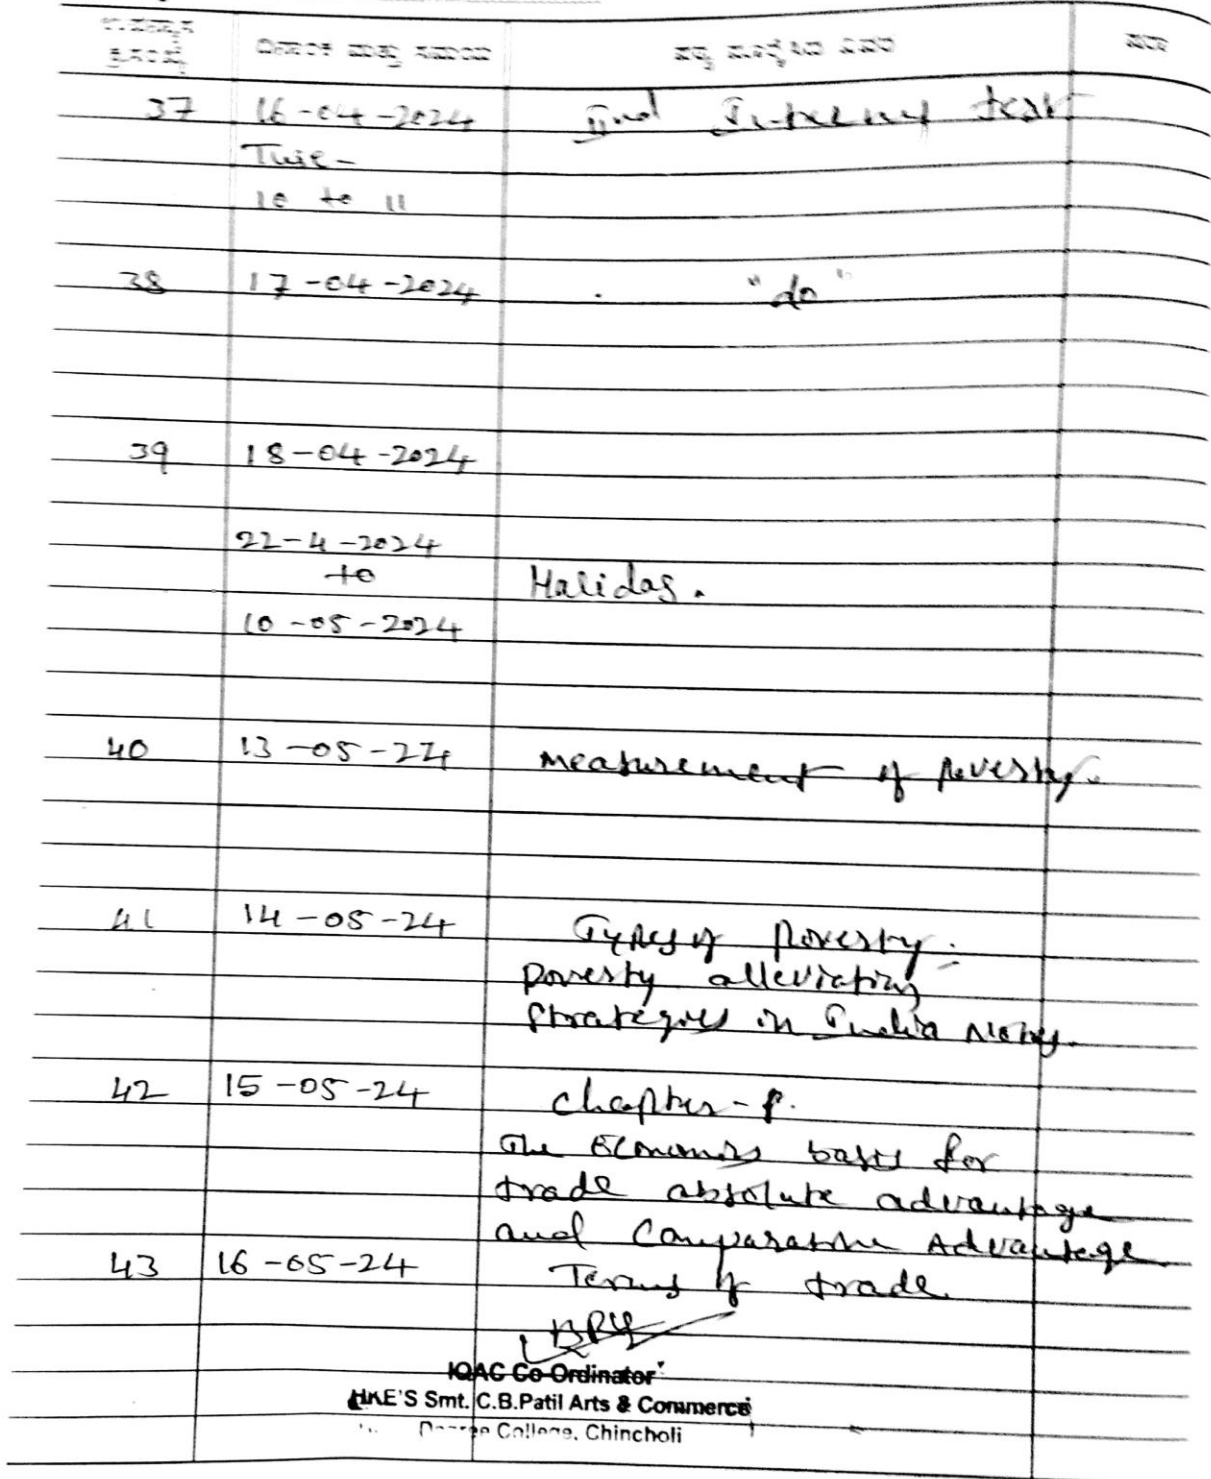 ಉಪನ್ಯಾಸ ಕ್ರ.ಸಂಖ್ಯೆ ದಿನಾಂಕ ಮತ್ತು ಸಮಯ ಪಠ್ಯ ವಿವರ ಷರಾ
37 16-04-2024 IInd Internal test
Time-
10 to 11
38 17-04-2024 "do"
39 18-04-2024
22-4-2024
to Halidas.
10-05-2024
40 13-05-24 Measurement of poverty.
41 14-05-24 Types of Poverty.
Poverty alleviation
Strategies in India Notes.
42 15-05-24 Chapter-
The Economics basis for
trade absolute advantage
and Comparative Advantage
43 16-05-24 Terms of trade
IQAC Co-Ordinator
HKE'S Smt. C.B.Patil Arts & Commerce
Degree College, Chincholi